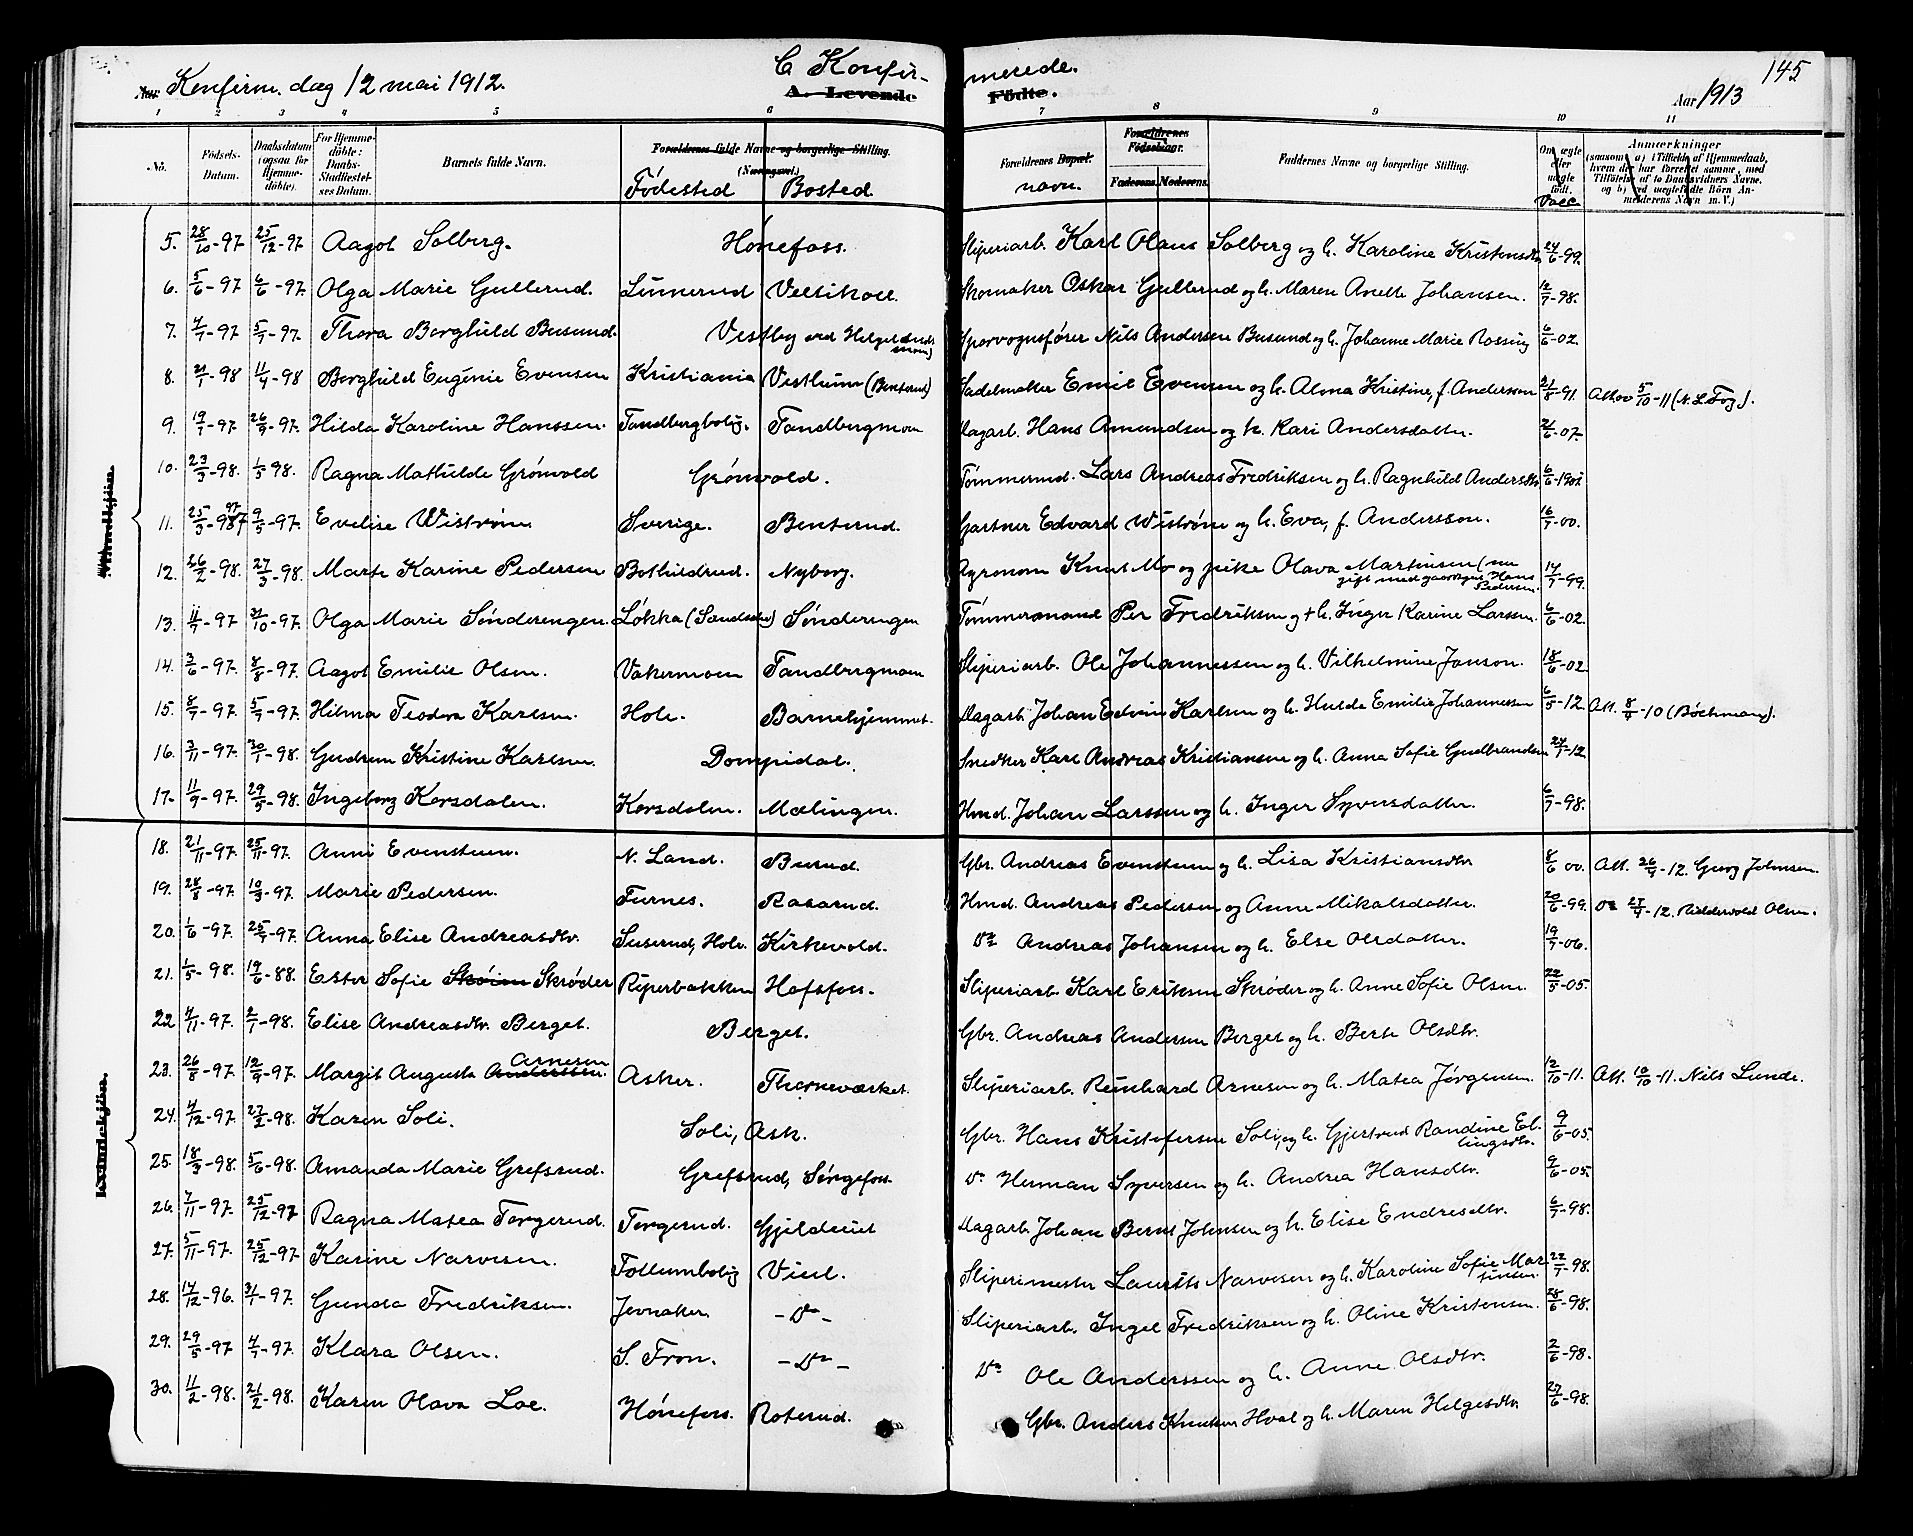 Konfirm. dag 12 mai 1912.
C Konfirmerede.
145
Aar 1913
A. Levende Födte.
1 2 3 4 5 6 7 8 9 10 11
No.
Födsels-Datum.
Daabsdatum (ogsaa for Hjemmedöbte).
For Hjemmedöbte: Daabs-Stadfæstelses Datum.
Barnets fulde Navn.
Forældrenes fulde Navne og borgerlige Stilling.
(Næringsvei.)
Födested Bosted
Forældrenes Bopæl. navn.
Forældrenes Födselsaar.
Faderens. Moderens.
Faddernes Navne og borgerlige Stilling.
Om ægte eller uægte födt. Vacc
Anmærkninger
(saasom: a) i Tilfælde af Hjemmedaab, hvem der har forrettet samme, med Tilföielse af to Daabsvidners Navne, og b) ved uægtefödte Börn Anmelderens Navn m. V.)
Mandkjön.
5. 28/10-97 25/12-97 Aagot Solberg. Hönefoss. Sliperiarb. Karl Olaus Solberg og h. Karoline Kristensdtr 24/6-99.
6. 5/6-97 6/6-97. Olga Marie Gullerud. Linnerud Veltikoll. Skomaker Oskar Gullerud og h. Maren Anette Johansen. 12/7-98.
7. 4/7-97 5/7-97. Thora Borghild Busund. Vestby ved Helgelands Sporvognsfører Nils Andersen Busund og h. Johanne Marie Rossing 6/6-02.
8. 21/1-98 11/4-98 Borghild Eugénie Evensen Kristiania Vestheim (Benterud) Sadelmaker Emil Evensen og h. Alma Kristine, f. Andersson 21/8-91. Att 5/10-11 (N. L. Fog).
9. 19/7-97 26/9-97. Hilda Karoline Hanssen. Tandbergbolig. Tandbergmoen Dagarb. Hans Amundsen og h. Kari Andersdatter. 21/6-07.
10. 23/3-98. 1/5 98. Ragna Mathilde Grönvold Grönvold. Tömmermd. Lars Andreas Fredriksen og h. Ragnhild Andersdtr 6/6-1901.
11. 25/3-97 9/5-97. Eveline Wiström Sverige. Benterud. Gartner Edvard Wiström og h. Eva, f. Andersson. 16/7-00.
12. 26/2-98. 27/3-98. Marte Karine Pedersen Bothildrud. Nyborg. Agronom Knut Mo og pike Olava Martinsen (nu gift med gaardbr. Hans Pedersen. 14/7-99.
13. 11/7-97 31/10-97. Olga Marie Sönderengen. Løkka (Sandaker) Sönderengen Tömmermand Per Fredriksen og † h. Inger Karine Larsen. 6/6-02.
14. 3/6-97. 8/8-97. Aagot Emilie Olsen. Vakermoen Tandbergmoen Sliperiarb. Ole Johannessen og h. Vilhelmine Janson. 18/6-02
15. 8/7-97. 5/9-97. Hilma Teodora Karlsen. Hole. Barnehjemmet. Dagarb. Johan Edvin Karlsen og h. Hulda Emilie Johannessen 6/5-12. Att. 8/9-10 (Böckmann).
16. 3/11-97. 30/1-98. Gudrun Kristine Karlsen. Dompidal. Snedker Karl Andreas Kristiansen og h. Anna Sofie Gudbrandsen 24/1-12
17. 11/9-97. 29/5-98. Ingeborg Korsdalen. Korsdalen. Mælingen. Hmd. Johan Larssen og h. Inger Syversdatter. 6/7-98.
Kvindekjön.
18. 21/11-97. 25/11-97. Anni Evensteen. N. Land. Burud. Gbr. Andreas Evensteen og h. Lisa Kristiansdtr 8/6 00. Att. 26/4-12. Georg Johnsen.
19. 28/8-97. 10/9-97. Marie Pedersen. Furnes. Rasarud. Hmd. Andreas Pedersen og Anne Mikalsdatter. 20/6-99. do 27/4-12. Ridderwold Olsen.
20. 1/6-97. 25/7-97. Anna Elise Andreasdtr. Suserud, Hole. Kirkevold. Do Andreas Johansen og h. Else Olsdatter. 19/7-06.
21. 1/5-98. 19/6-88. Ester Sofie Skröder Ryperbakken Hofsfoss. Sliperiarb. Karl Eriksen Skröder og h. Anne Sofie Olsen 22/5-05.
22 4/11-97. 2/1-98. Elise Andreasdtr. Berget. Berget. Gbr. Andreas Andersen Berget og h. Berte Olsdtr.
23. 26/8-97. 12/9-97. Margit Augusta Andersen. Arnesen Asker. Thorneværket. Sliperiarb. Reinhard Arnesen og h. Matea Jörgensen. 12/10-11. Att. 10/10-11. Nils Lunde.
24. 4/12-97. 27/2-98. Karen Soli. Soli, Ask. Gbr. Hans Kristofersen Soli, og h. Gjertrud Randine Ellingsdtr. 9/6-05.
25. 18/3-98. 5/6-98. Amanda Marie Grefsrud. Grefsrud, Sörgefoss. Do Herman Syversen og h. Andrea Hansdtr. 9/6-05.
26. 7/11-97. 25/12-97 Ragna Matea Torgerud. Torgerud. Gjildreiet Dagarb. Johan Bernt Johnsen og h. Elise Endresdtr. 6/7-98.
27. 5/11-97. 25/12-97. Karine Narvesen. Follumbolig Viul. Sliperimester Laurits Narvesen og h. Karoline Sofie Martinsen. 22/7-98.
28. 14/12-96. 31/1-97. Gunda Fredriksen. Jevnaker. -Do- Sliperiarb. Ingel Fredriksen og h. Oline Kristensen. 28/6-98.
29. 29/5-97 4/7-97. Klara Olsen. S. Fron. -Do- Do Ole Anderssen og h. Anne Olsdtr. 2/6-98.
30. 11/2-98. 21/2-98. Karen Olava Loe. Hönefoss. Roterud. Gbr. Anders Knutsen Hval og h. Maren Helgesdtr 27/6-98.